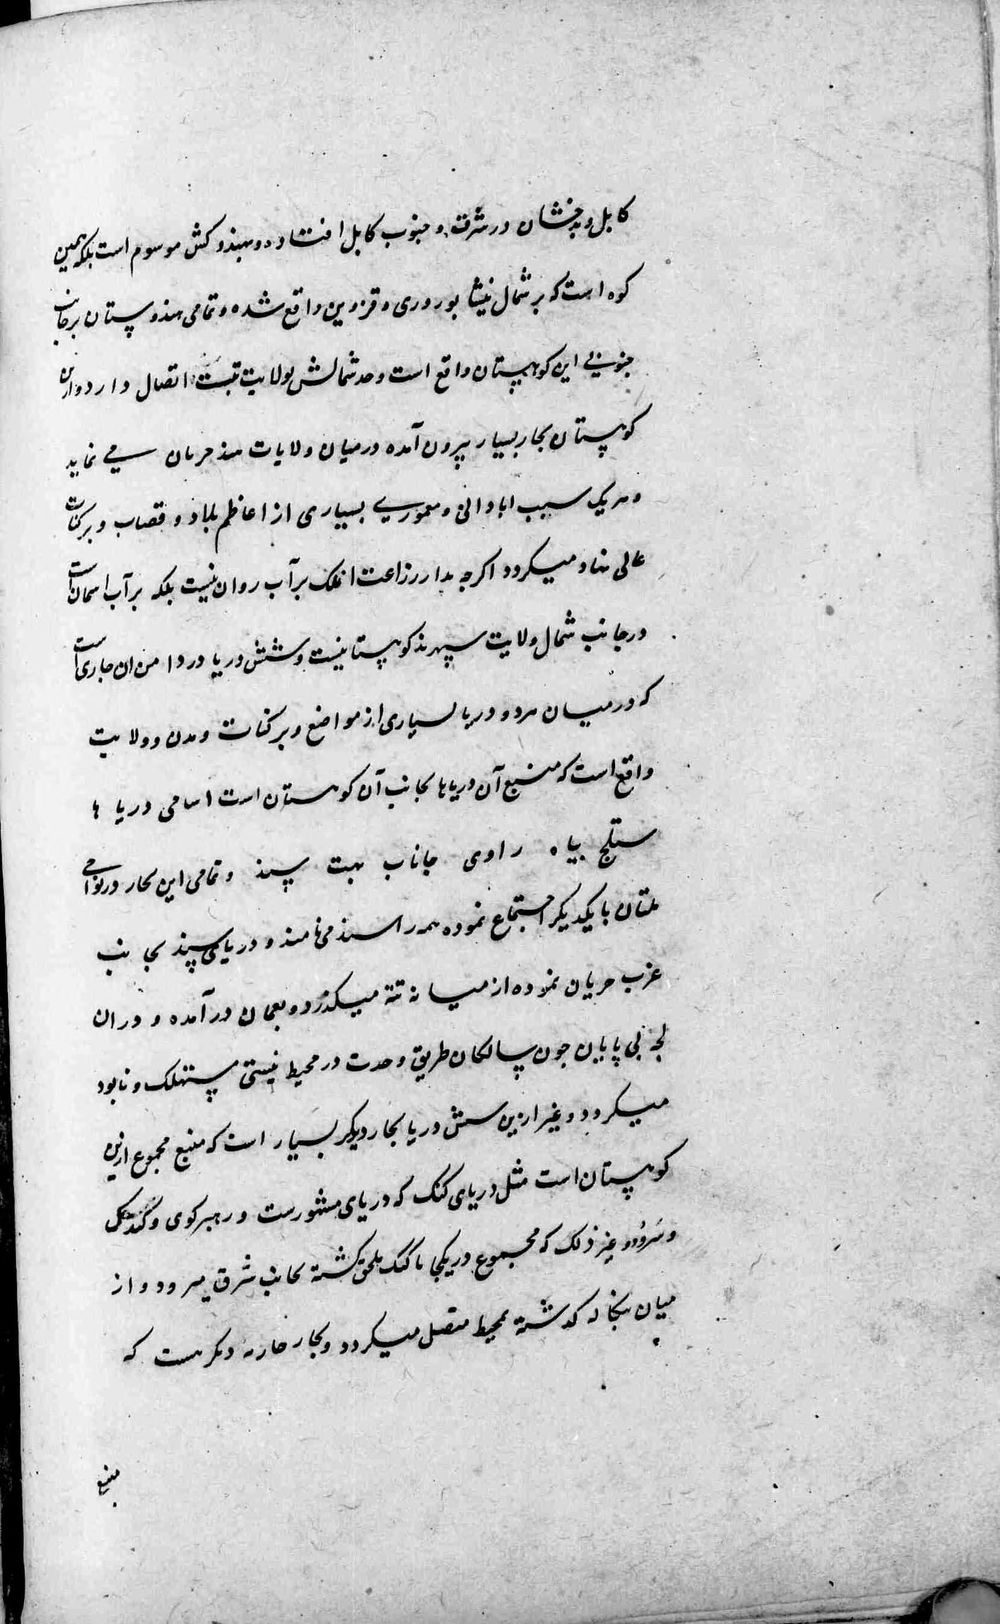 کابل و بدخشان در شرق و جنوب کابل افتاده و بهندوکش موسوم است بلکه همین
کوه است که بر شمال نیشابور و ری و قزوین واقع شده و تمامی هندوستان بر جانب
جنوبی این کوهستان واقع است و حد شمالش بولایت تبت اتصال دارد و ازین
کوهستان بحار بسیار بیرون آمده در میان ولایات هند جریان می نماید
و هر یک سبب ابادانی و معموری بسیاری از اعاظم بلاد و قصاب و پرکنات
عالی نهاد میکردد اکرچه مدار زراعت انملک بر آب روان نیست بلکه بر آب اسمان است
در جانب شمال ولایت سهرند کوهستانیست و شش دریا در دامن ان جاری است
که در میان هر دو دریا بسیاری از مواضع و پرکنات و مدن و ولایت
واقع است که منبع آن دریاها بجانب آن کوهستان است اسامی دریا ها
ستلج بیاه راوی جاناب بهت سند و تمامی این بحار در نواحی
ملتان با یکدیکر اجتماع نموده همه را سند می نامند و دریای سند بجانب
غرب جریان نموده از میانه تته میکذرد و بعمان در آمده و در ان
لجه بی پایان چون سالکان طریق وحدت در محیط نیستی مستهلک و نابود
میکردد و غیر ازین شش دریا بحار دیکر بسیار است که منبع مجموع ازین
کوهستان است مثل دریای کنک که دریای مشهورست و رهبر کوی و گندک
و سَرُو و غیر ذلک که مجموع در یکجا با کنک ملحق کشته بجانب شرق میرود و از
میان بنکاله کذشته بمحیط متصل میکردد و بحار جاریه دیکر هست که
منبع